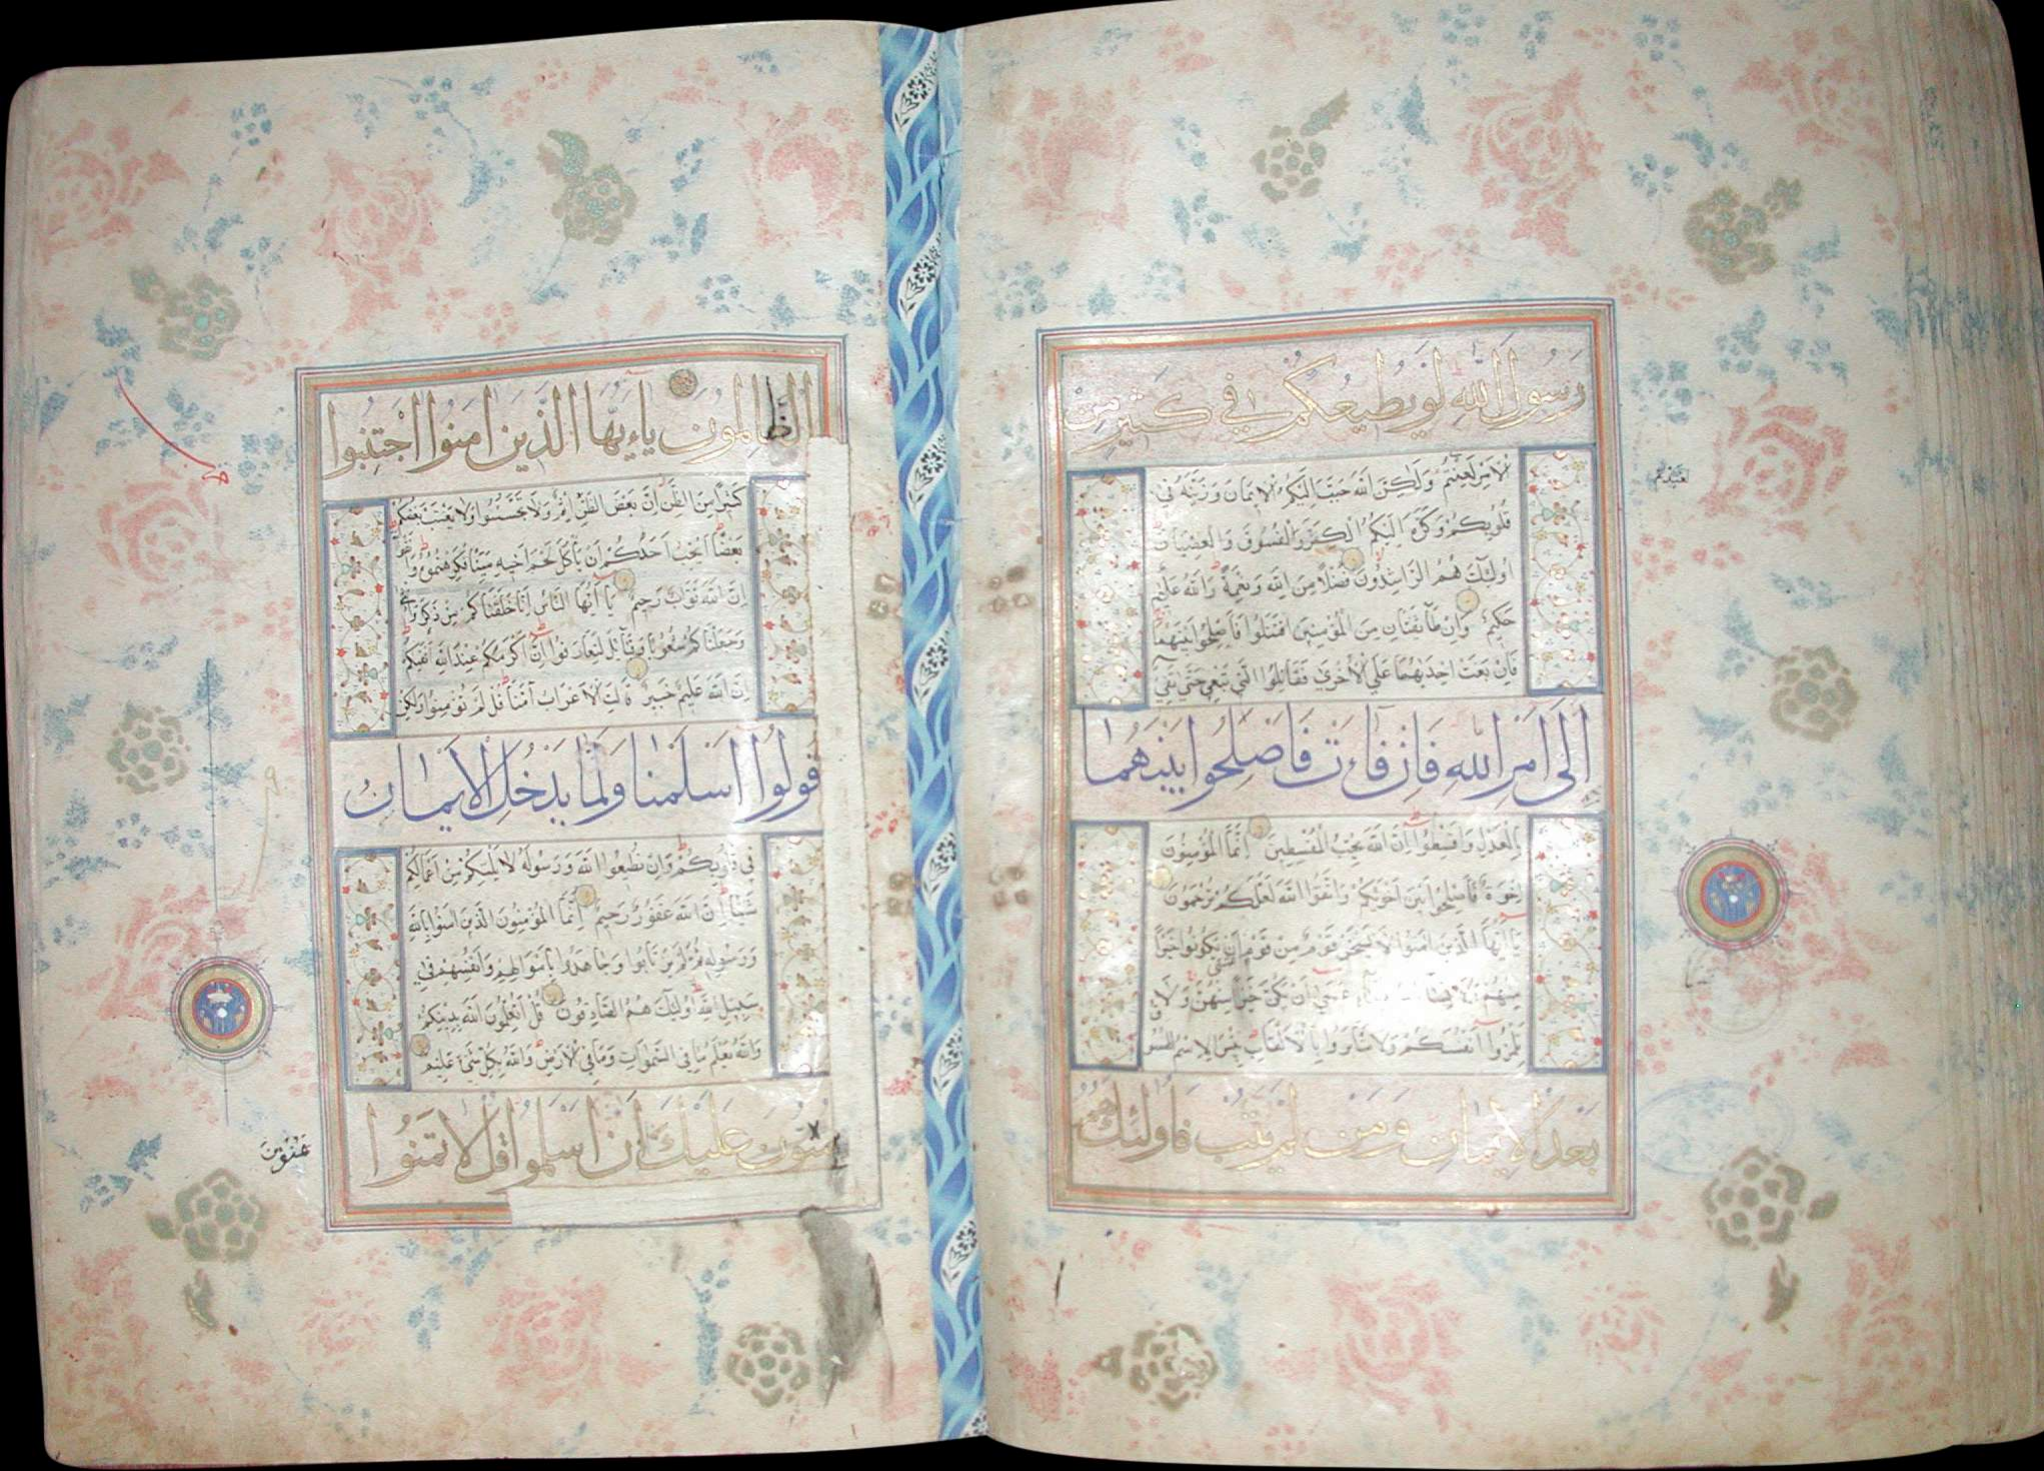 رَسُولَ اللهِ لَوْ يُطِيعُكُمْ فِي كَثِيرٍ مِنَ
الْاَمْرِ لَعَنِتُّمْ وَلٰكِنَّ اللهَ حَبَّبَ اِلَيْكُمُ الْاِيمَانَ وَزَيَّنَهُ فِي
قُلُوبِكُمْ وَكَرَّهَ اِلَيْكُمُ الْكُفْرَ وَالْفُسُوقَ وَالْعِصْيَانَ
اُولٰئِكَ هُمُ الرَّاشِدُونَ فَضْلًا مِنَ اللهِ وَنِعْمَةً وَاللهُ عَلِيمٌ
حَكِيمٌ وَاِنْ طَائِفَتَانِ مِنَ الْمُؤْمِنِينَ اقْتَتَلُوا فَاَصْلِحُوا بَيْنَهُمَا
فَاِنْ بَغَتْ اِحْدٰيهُمَا عَلَى الْاُخْرٰى فَقَاتِلُوا الَّتِي تَبْغِي حَتّٰى تَفِيءَ
اِلٰى اَمْرِ اللهِ فَاِنْ فَاءَتْ فَاَصْلِحُوا بَيْنَهُمَا
بِالْعَدْلِ وَاَقْسِطُوا اِنَّ اللهَ يُحِبُّ الْمُقْسِطِينَ اِنَّمَا الْمُؤْمِنُونَ
اِخْوَةٌ فَاَصْلِحُوا بَيْنَ اَخَوَيْكُمْ وَاتَّقُوا اللهَ لَعَلَّكُمْ تُرْحَمُونَ
يَا اَيُّهَا الَّذِينَ اٰمَنُوا لَا يَسْخَرْ قَوْمٌ مِنْ قَوْمٍ عَسٰى اَنْ يَكُونُوا خَيْرًا
مِنْهُمْ وَلَا نِسَاءٌ عَسٰى اَنْ يَكُنَّ خَيْرًا مِنْهُنَّ وَلَا
تَلْمِزُوا اَنْفُسَكُمْ وَلَا تَنَابَزُوا بِالْاَلْقَابِ بِئْسَ الِاسْمُ الْفُسُوقُ
بَعْدَ الْاِيمَانِ وَمَنْ لَمْ يَتُبْ فَاُولٰئِكَ هُمُ
الظَّالِمُونَ يَاءَيُّهَا الَّذِينَ اٰمَنُوا اجْتَنِبُوا
كَثِيرًا مِنَ الظَّنِّ اِنَّ بَعْضَ الظَّنِّ اِثْمٌ وَلَا تَجَسَّسُوا وَلَا يَغْتَبْ بَعْضُكُمْ
بَعْضًا اَيُحِبُّ اَحَدُكُمْ اَنْ يَاْكُلَ لَحْمَ اَخِيهِ مَيْتًا فَكَرِهْتُمُوهُ وَاتَّقُوا
اِنَّ اللهَ تَوَّابٌ رَحِيمٌ يَا اَيُّهَا النَّاسُ اِنَّا خَلَقْنَاكُمْ مِنْ ذَكَرٍ وَاُنْثٰى
وَجَعَلْنَاكُمْ شُعُوبًا وَقَبَائِلَ لِتَعَارَفُوا اِنَّ اَكْرَمَكُمْ عِنْدَ اللهِ اَتْقٰيكُمْ
اِنَّ اللهَ عَلِيمٌ خَبِيرٌ قَالَتِ الْاَعْرَابُ اٰمَنَّا قُلْ لَمْ تُؤْمِنُوا وَلٰكِنْ
قُولُوا اَسْلَمْنَا وَلَمَّا يَدْخُلِ الْاِيمَانُ
فِي قُلُوبِكُمْ وَاِنْ تُطِيعُوا اللهَ وَرَسُولَهُ لَا يَلِتْكُمْ مِنْ اَعْمَالِكُمْ
شَيْئًا اِنَّ اللهَ غَفُورٌ رَحِيمٌ اِنَّمَا الْمُؤْمِنُونَ الَّذِينَ اٰمَنُوا بِاللهِ
وَرَسُولِهِ ثُمَّ لَمْ يَرْتَابُوا وَجَاهَدُوا بِاَمْوَالِهِمْ وَاَنْفُسِهِمْ فِي
سَبِيلِ اللهِ اُولٰئِكَ هُمُ الصَّادِقُونَ قُلْ اَتُعَلِّمُونَ اللهَ بِدِينِكُمْ
وَاللهُ يَعْلَمُ مَا فِي السَّمٰوَاتِ وَمَا فِي الْاَرْضِ وَاللهُ بِكُلِّ شَيْءٍ عَلِيمٌ
يَمُنُّونَ عَلَيْكَ اَنْ اَسْلَمُوا قُلْ لَا تَمُنُّوا